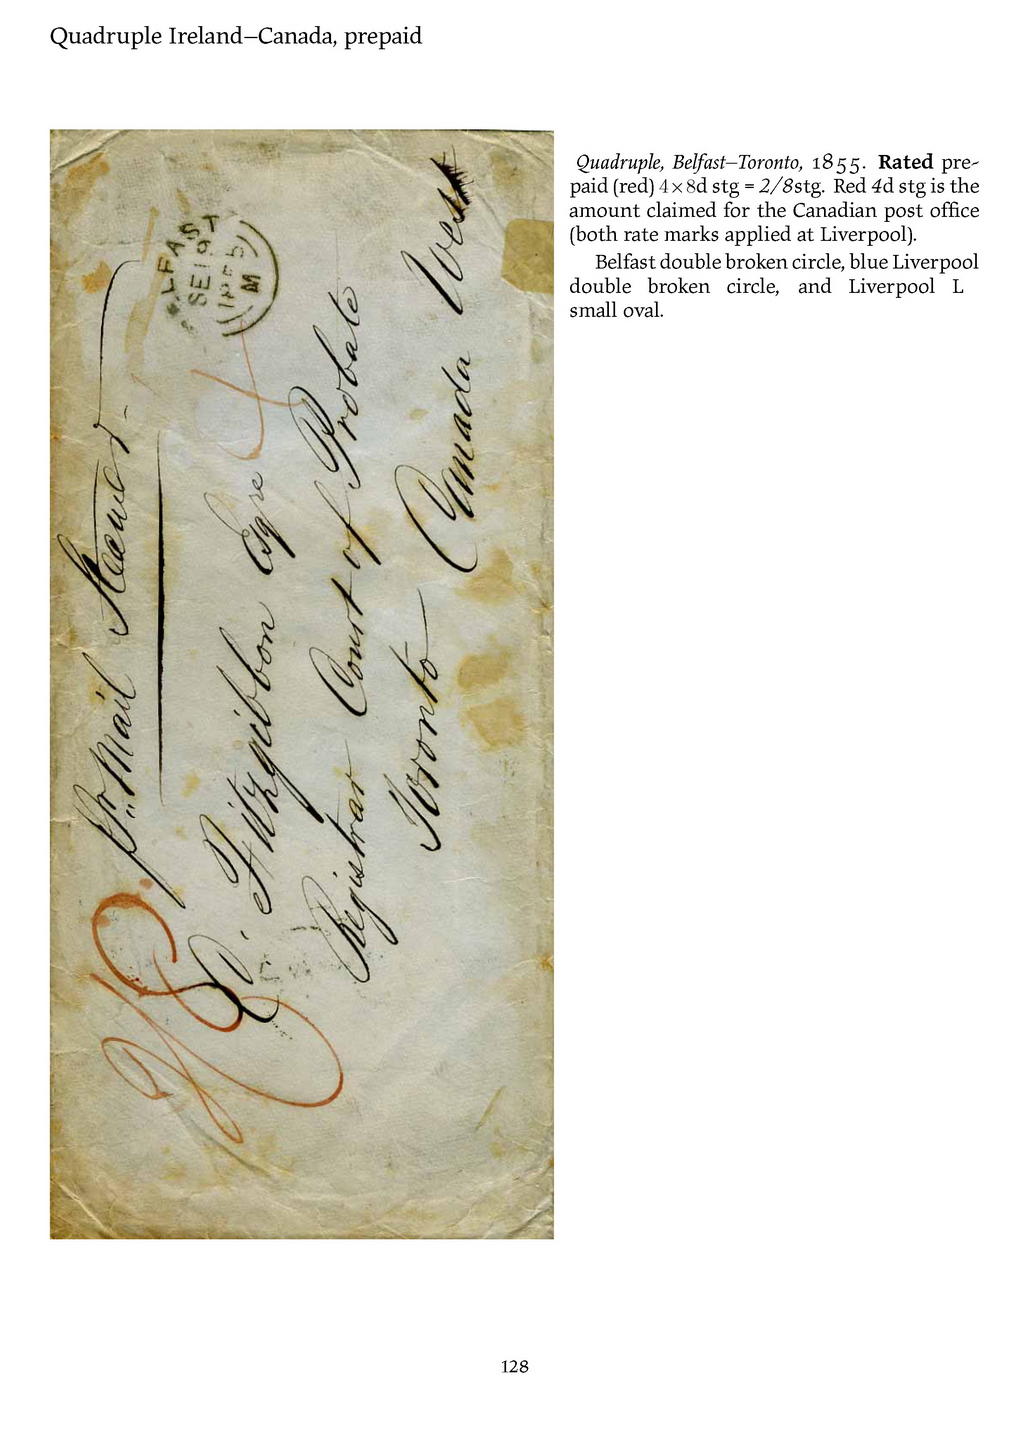 Quadruple Ireland–Canada, prepaid
Quadruple, Belfast–Toronto, 1855. Rated pre-
paid (red) 4×8d stg = 2/8stg. Red 4d stg is the
amount claimed for the Canadian post office
(both rate marks applied at Liverpool).
Belfast double broken circle, blue Liverpool
double broken circle, and Liverpool L
small oval.
LFAST
SE 19
1855
M
Pr. Mail Steamer
2/8
4
C. Fitzgibbon Esqre
Registrar Court of Probate
Toronto Canada West
128